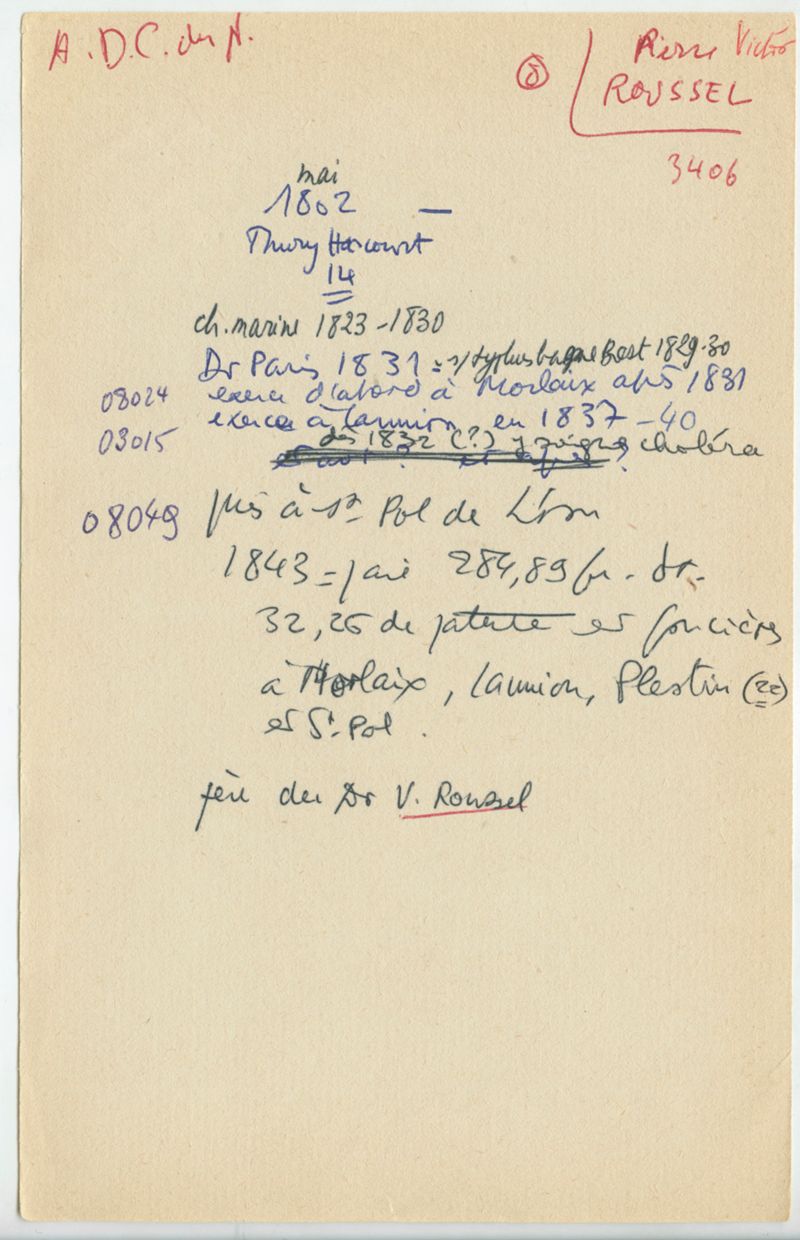 A.D.C. du N.
Pierre Victor
ROUSSEL
3406
mai
1802 —
Thury Harcourt
14
ch. marine 1823-1830
Dr Paris 1831 = s/ typhus bagne Brest 1829-30
08024 exerce d'abord à Morlaix après 1831
exerce à Lannion en 1837-40
03015 dès 1832 (?) y soigne choléra
08049 puis à St Pol de Léon
1843 = paie 284,89 fr. dt.
32,26 de patente et foncières
à Morlaix, Lannion, Plestin (22)
et St. Pol.
père du Dr V. Roussel